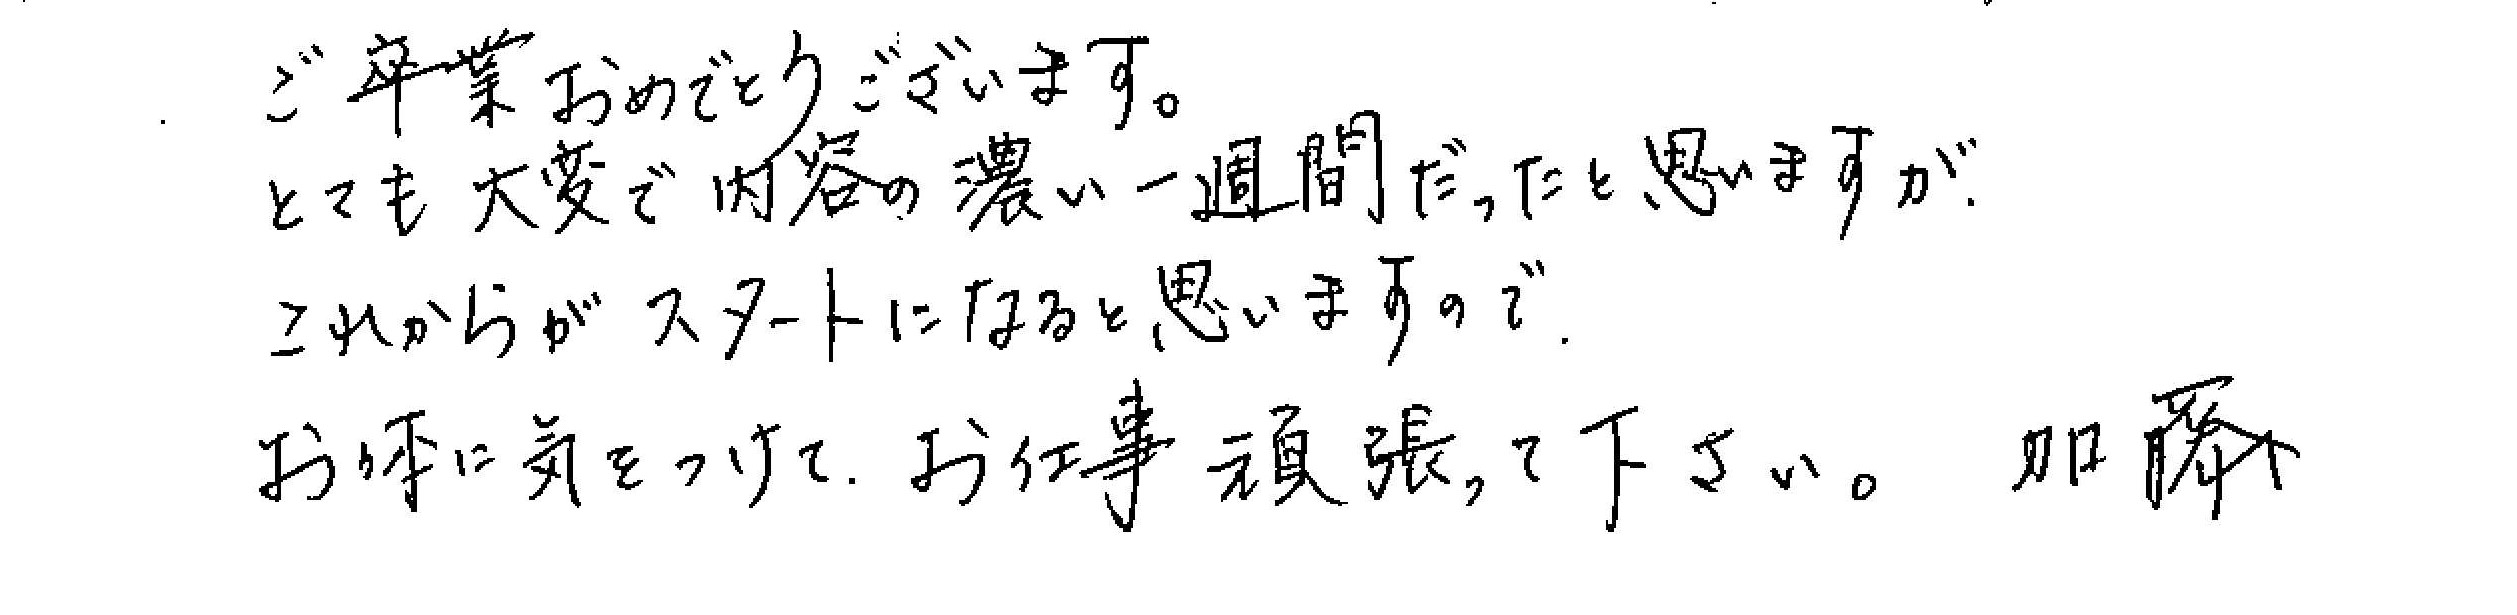 ご卒業おめでとうございます。
とても大変で内容の濃い一週間だったと思いますが.
これからがスタートになると思いますので.
お体に気をつけて.お仕事頑張って下さい。 加藤